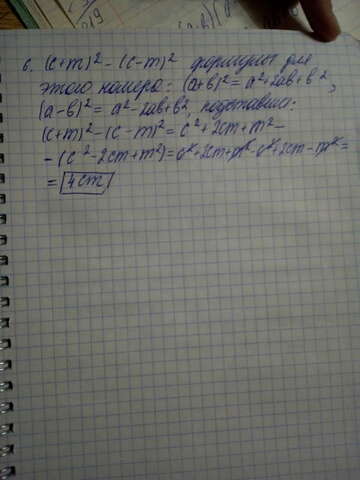 6. (c+m)² - (c-m)² формулы для
этого номера: (a+b)² = a²+2ab+b²,
(a-b)² = a²-2ab+b², подставим:
(c+m)² - (c-m)² = c²+2cm+m² -
- (c²-2cm+m²) = c²+2cm+m²-c²+2cm-m² =
= 4cm